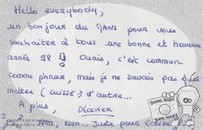 Hello everybody,
un bonjour du MANS pour vous
souhaiter à tous une bonne et heureuse
année 98 !! Ouais, c'est commun
comme phrase, mais je ne savais pas quoi
mettre (aussi) d'autre...
A plus,
Xavier
non, rien. Juste pour